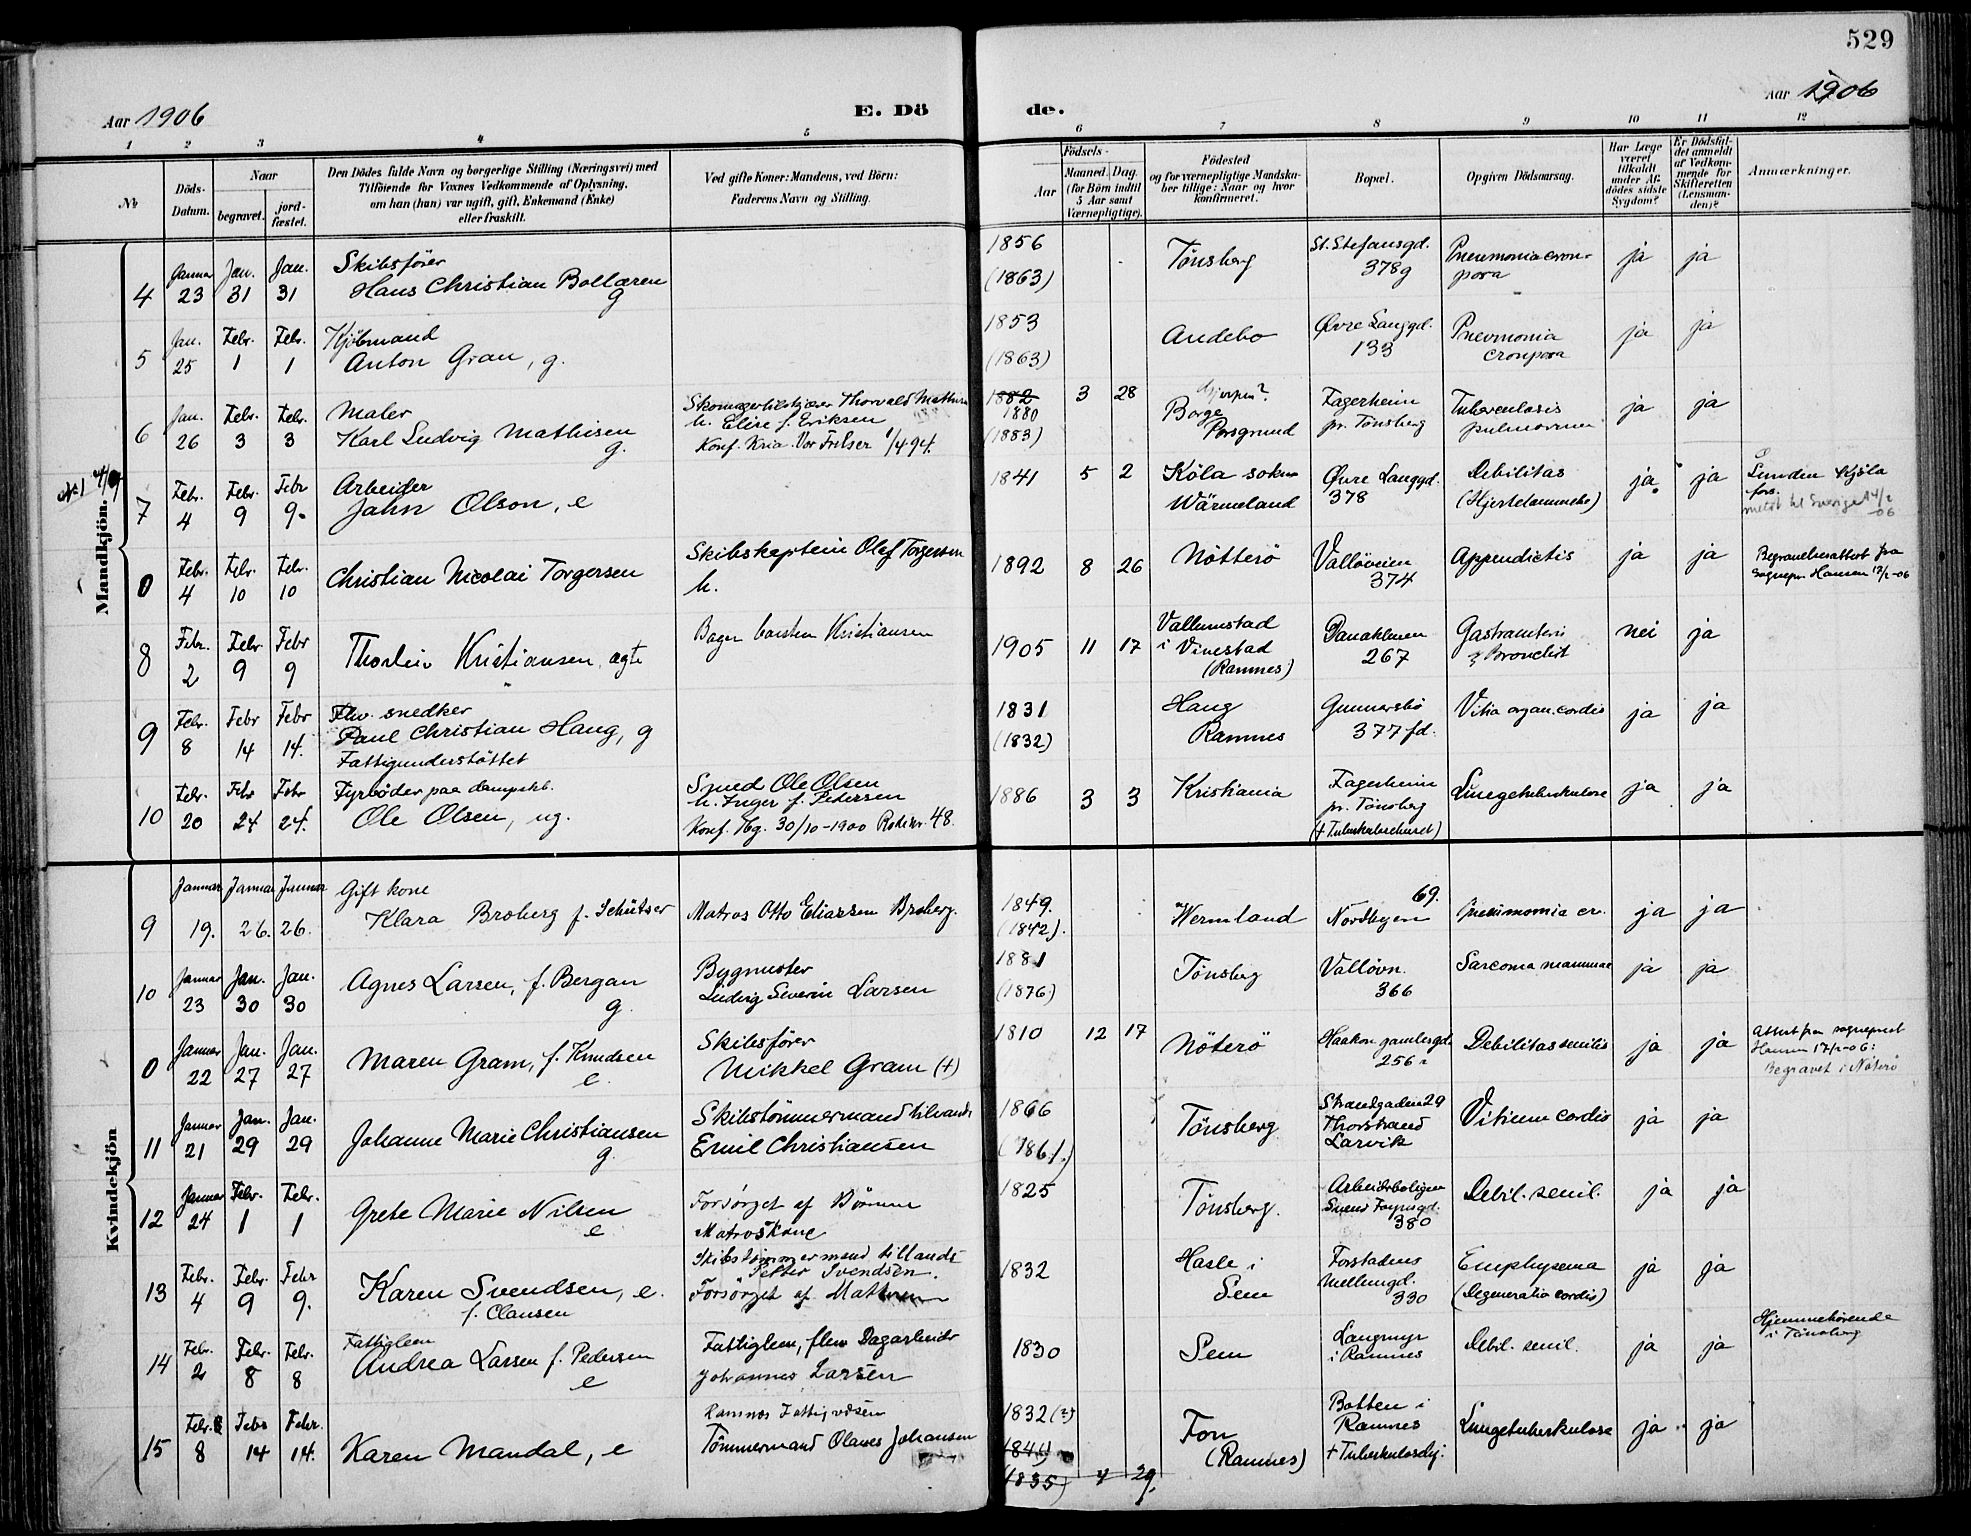 529
Aar 1906
E. Dö
de.
Aar 1906
1 2 3 4 5 6 7 8 9 10 11 12
№
Döds-Datum.
Naar
begravet.
jordfæstet.
Den Dödes fulde Navn og borgerlige Stilling (Næringsvei) med
Tilföiende for Voxnes Vedkommende af Oplysning,
om han (hun) var ugift, gift, Enkemand (Enke)
eller fraskilt.
Ved gifte Koner: Mandens, ved Börn:
Faderens Navn og Stilling.
Födsels-
Aar
Maaned. Dag.
(for Börn indtil
5 Aar samt
Værnepligtige).
Födested
og for værnepligtige Mandskaber tillige: Naar og hvor
konfirmeret.
Bopæl.
Opgiven Dödsaarsag.
Har Læge
været
tilkaldt
under Afdödes sidste
Sygdom?
Er Dödsfaldet anmeldt
af Vedkommende for
Skifteretten
(Lensmanden)?
Anmærkninger.
Mandkjön.
4 Januar 23 Jan. 31 Jan. 31 Skibsförer
Hans Christian Bollæren g
1856 (1863) Tönsberg St. Stefansgd. 378g Pneumonia crouposa ja ja
5 Jan. 25 Febr. 1 Febr. 1 Kjöbmand
Anton Gran, g.
1853 (1863) Andebo Øvre Langgd. 133 Pnevmonia crouposa ja ja
6 Jan. 26 Febr. 3 Febr. 3 Maler
Karl Ludvig Mathisen g.
Thorvald
h. Elise f. Eriksen
Konf. Kria. Vor Frelser 1/4 94.
1882 1880 (1883) 3 28 Gjerpen? Borge Porsgrund Fagerheim pr. Tönsberg Tuberculosis ja ja
7 Febr. 4 Febr. 9 Febr 9 Arbeider
Jahn Olson, e
1841 5 2 Köla sokn Wärmeland Øvre Langgd. 378 Debilitas ja ja
0 Febr. 4 Febr. 10 Febr. 10 Christian Nicolai Torgersen
Skibskaptein Olaf Torgersen
h.
1892 8 26 Nötterö Vallöveien 374 Appendictis ja ja Begravelsesattest fra
sognepr. Hansen 13/2-06
8 Febr. 2 Febr 9 Febr 9 Thorleiv Kristiansen, ægte
Bager Carsten Kristiansen
1905 11 17 Vallumstad
i Vivestad
(Ramnes) 267 nei ja
9 Febr. 8 Febr 14 Febr 14. Fhv. snedker
Paul Christian Haug, g
Fattigunderstöttet
1831 (1832) Haug Ramnes Gunnarsbö 377 fd. Vitia organ. cordis ja ja
10 Febr. 20 Febr 24 Febr 24. Fyrböder paa dampskb.
Ole Olsen, ug.
Smed Ole Olsen
h. Inger f. Pedersen
Konf. Tbg. 30/10-1900 48.
1886 3 3 Kristiania Fagerheim
pr. Tönsberg Lungetuberkulose ja ja
Kvindekjön
9 Januar 19. Januar 26. Januar 26. Gift kone
Klara Broberg f. Schützer
Matros Otto Eliassen Broberg.
1849. (1842). Wermland Nordbyen 69. Pneumonia cr. ja ja
10 Januar 23 Jan. 30 Jan. 30 Agnes Larsen, f. Bergan g.
Bygmester
Ludvig Severin Larsen
1881 (1876) Tönsberg Vallövn. 366 Sarcoma mammae ja ja
0 Januar 22 Jan. 27 Jan. 27 Maren Gram, f. Knudsen e.
Skibsförer
Mikkel Gram (+)
1810 12 17 Nöterö Haakon gamlesgd. 256 Debilitas senilis ja ja Attest fra sogneprest
Hansen 17/2-06:
Begravet i Nöterö
11 Januar 21 Jan. 29 Jan. 29 Johanne Marie Christiansen g.
Skibstömmermand tilvands
Emil Christiansen
1866 (1861.) Tönsberg Strandgaden 29
Thorstrand
Larvik Vitium cordis ja ja
12 Januar 24 Febr. 1 Febr. 1 Grete Marie Nilsen e
Forsörget af Börnene
Matroskone
1825 Tönsberg. Arbeiderboligen
Svend Foynsgd. 380 Debil. senil. ja ja
13 Febr. 4 Febr. 9 Febr 9. Karen Svendsen, e.
f. Clausen
Skibstömmermand tillands
Petter Svendsen.
Forsörget af
1832 Hasle i Sem Forstadens
Mellemgd. 330 Emphysema
(Degeneratio cordis) ja ja
14 Febr. 2 Febr. 8 Febr. 8 Fattiglem
Andrea Larsen f. Pedersen e
Fattiglem, Dagarbeider
Johannes Larsen
1830 Sem Langmyr
i Ramnes Debil. senil. ja ja Hjemmehörende
i Tönsberg
15 Febr. 8 Febr 14 Febr. 14. Karen Mandal, e
Ramnes Fattigvæsen
Tömmermand Olaves Johansen
1832 (?) 1844 (1835) 4 29. Fon
(Ramnes) Botten i
Ramnes Lungetuberkulose ja ja